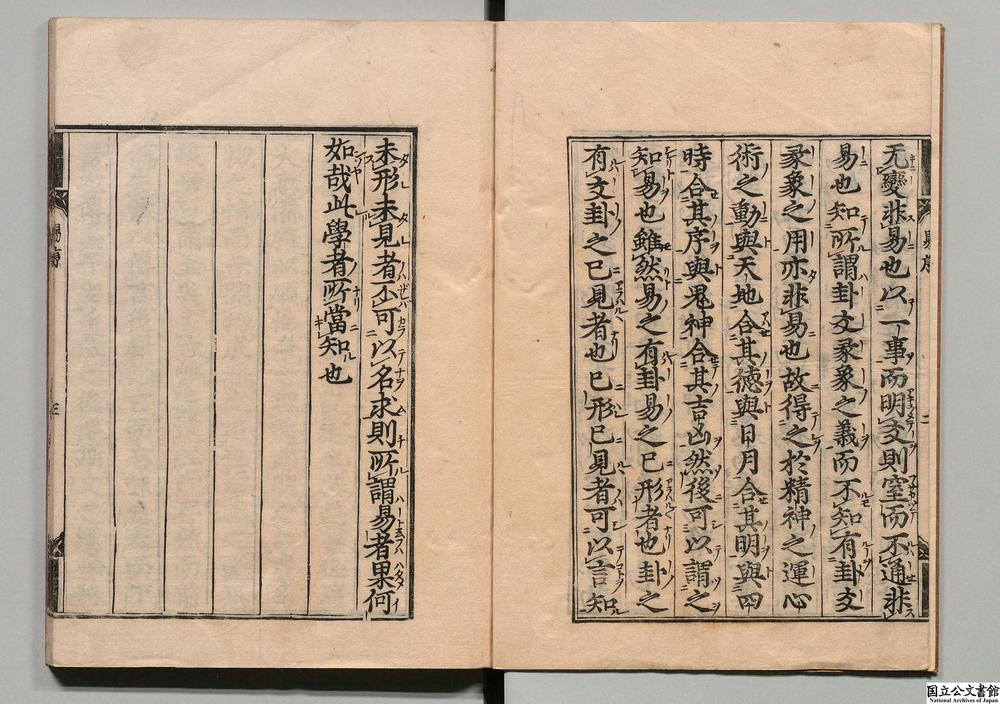 无變非易也以一事而明爻則窒而不通非
易也知所謂卦爻彖象之義而不知有卦爻
彖象之用亦非易也故得之於精神之運心
術之動與天地合其德與日月合其明與四
時合其序與鬼神合其吉凶然後可以謂之
知易也雖然易之有卦易之已形者也卦之
有爻卦之已見者也已形已見者可以言知
未形未見者不可以名求則所謂易者果何
如哉此學者所當知也
易序
國立公文書館
National Archives of Japan